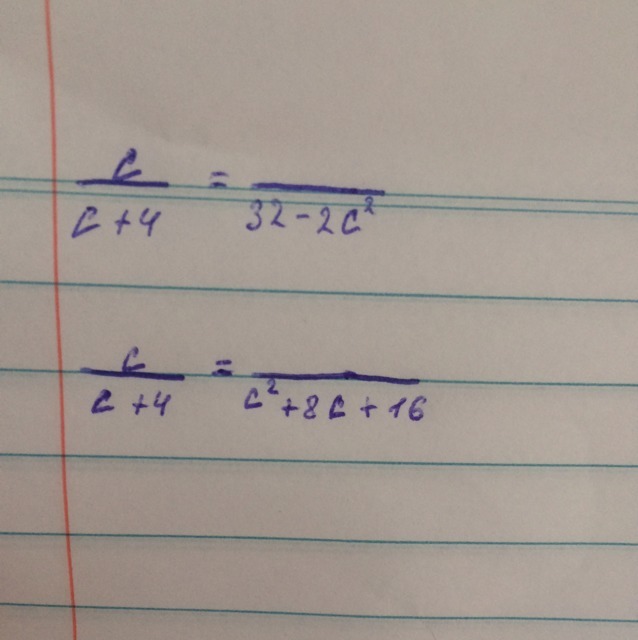 c/(c+4) = /(32-2c²)
c/(c+4) = /(c²+8c+16)